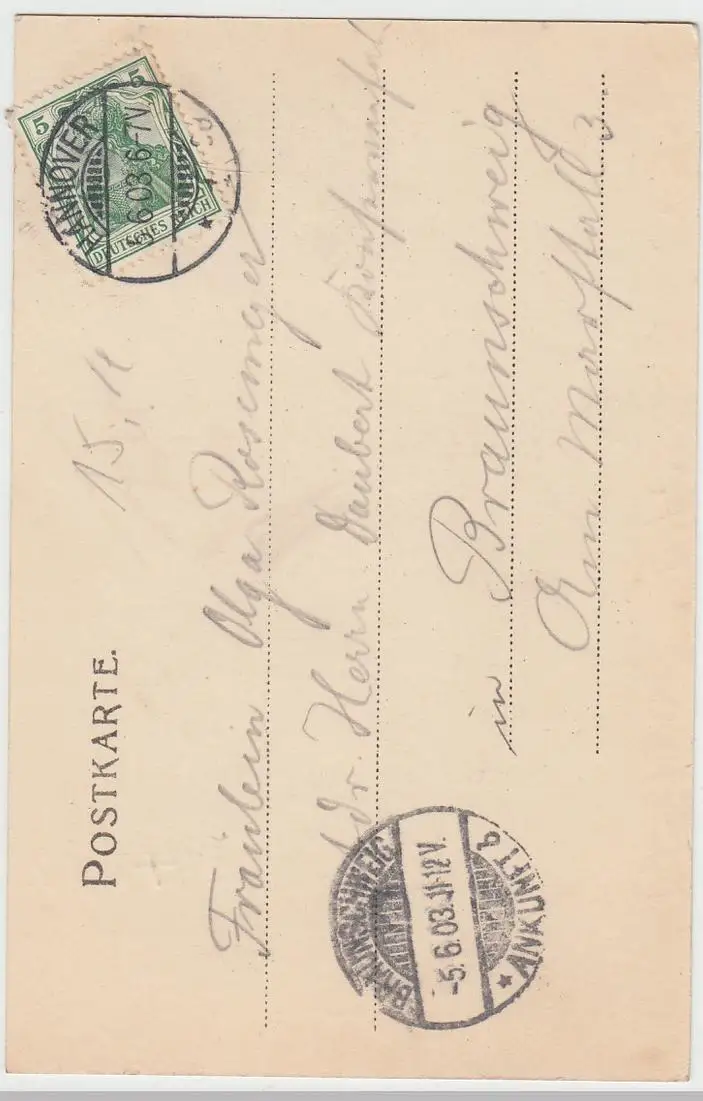 POSTKARTE.
5 5
DEUTSCHES REICH
HANNOVER
6.03. 6-7V
15,
Fräulein Olga Rosemeyer
Adr. Herrn Daubert
in Braunschweig
Am Marstall 3
BRAUNSCHWEIG
-5.6.03.11-12V.
* ANKUNFT b